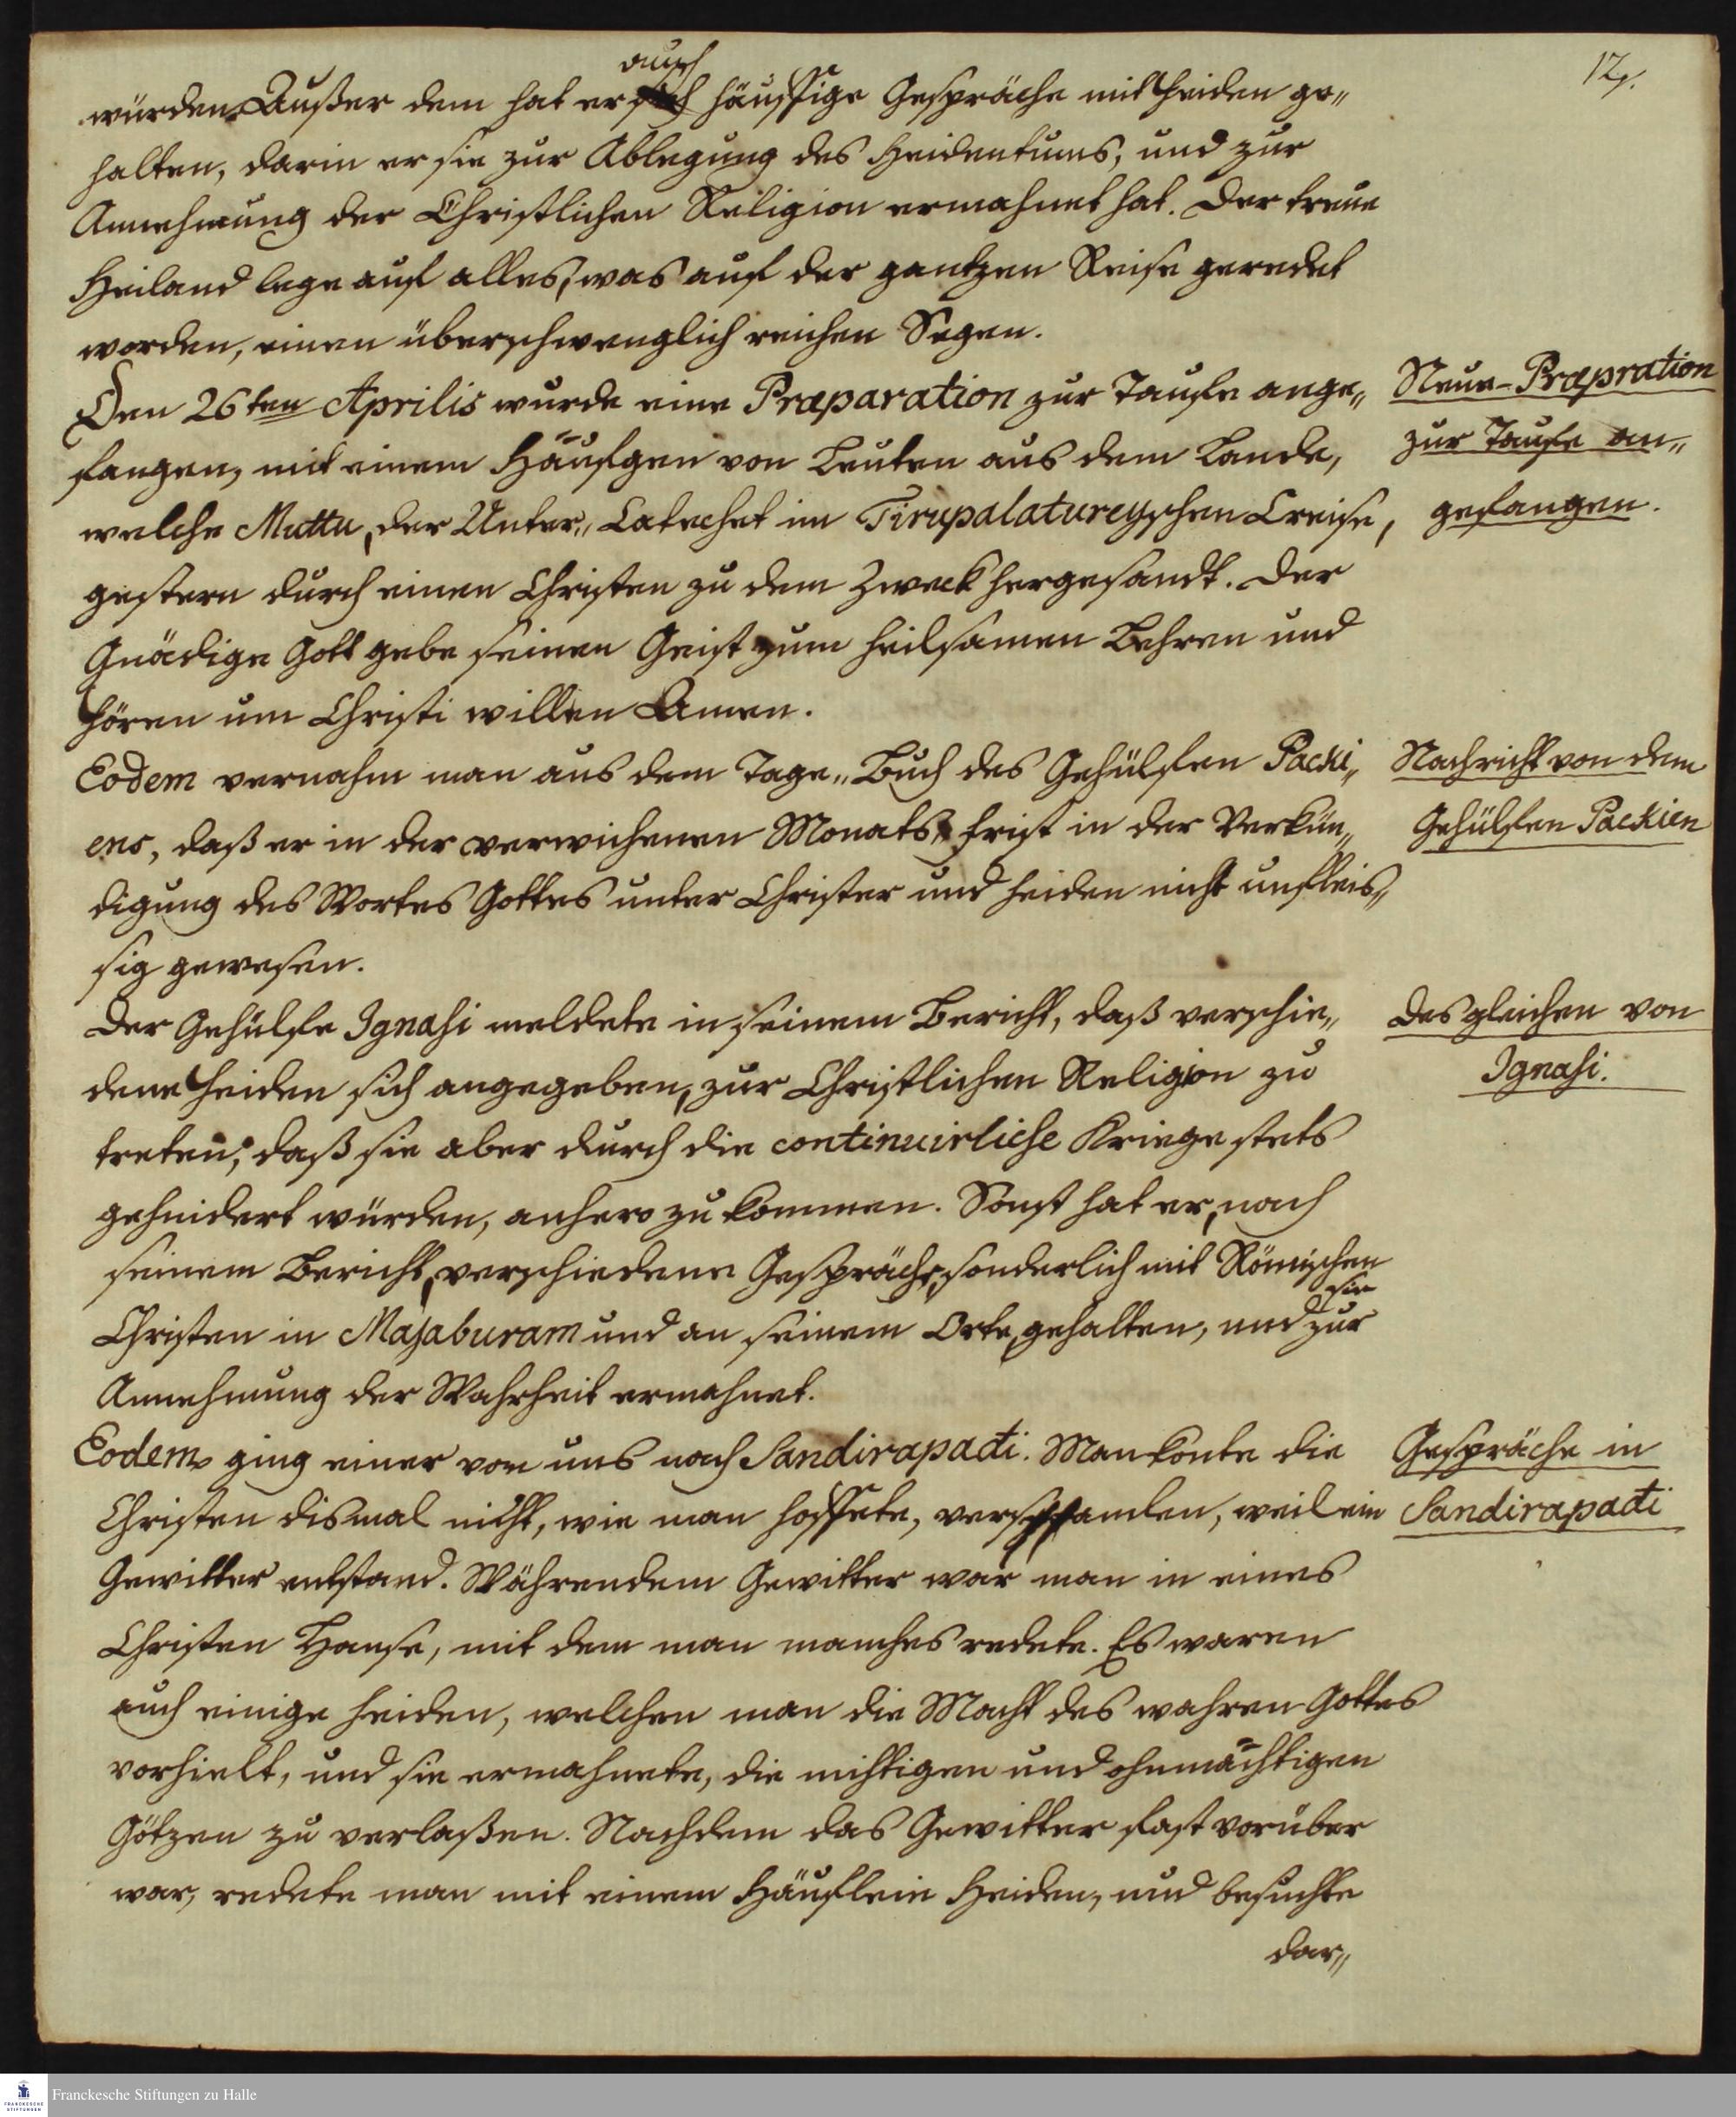 12,
würden. Außer dem hat er auch häuffige Gespräche mit Heiden ge„
halten, darin er sie zur Ablegung des Heidentums, und zur
Annehmung der Christlichen Religion ermahnet hat. Der treue
Heiland lege auf alles, was auf der gantzen Reise geredet
worden, einen überschwenglich reichen Segen.
Den 26ten Aprilis wurde eine Præparation zur Taufe ange„
fangen, mit einem Häufgen von Leuten aus dem Lande,
welche Muttu, der Unter„Catechet im Tirupalatureyschen Creise,
gestern durch einen Christen zu dem Zweck hergesandt. Der
Gnädige Gott gebe seinen Geist zum heilsamen Lehren und
hören um Christi willen Amen.
Neue-Præpration
zur Taufe an„
gefangen.
Eodem vernahm man aus dem Tage„Buch des Gehülfen Packi„
ens, daß er in der verwichenen Monats frist in der Verkün„
digung des Wortes Gottes unter Christen und Heiden nicht unfleis„
sig gewesen.
Nachricht von dem
Gehülfen Packien
Der Gehülfe Ignasi meldete in seinem Bericht, daß verschie„
dene Heiden sich angegeben, zur Christlichen Religion zu
treten, daß sie aber durch die continuirliche Kriege stets
gehindert würden, anhero zu kommen. Sonst hat er, nach
seinem Bericht, verschiedene Gespräche, sonderlich mit Römischen
Christen in Majaburam und an seinem Orte, gehalten, und sie zur
Annehmung der Wahrheit ermahnet.
Desgleichen von
Ignasi.
Eodem ging einer von uns nach Sandirapadi. Man konte die
Christen dismal nicht, wie man hoffete, versamlen, weil ein
Gewitter entstand. Währendem Gewitter war man in eines
Christen Hause, mit dem man manches redete. Es waren
auch einige Heiden, welchen man die Macht des wahren Gottes
vorhielt, und sie ermahnete, die nichtigen und ohnmächtigen
Götzen zu verlaßen. Nachdem das Gewitter fast vorüber
war, redete man mit einem Häuflein Heiden, und besuchte
dar„
Gespräche in
Sandirapadi
Franckesche Stiftungen zu Halle
FRANCKESCHE
STIFTUNGEN